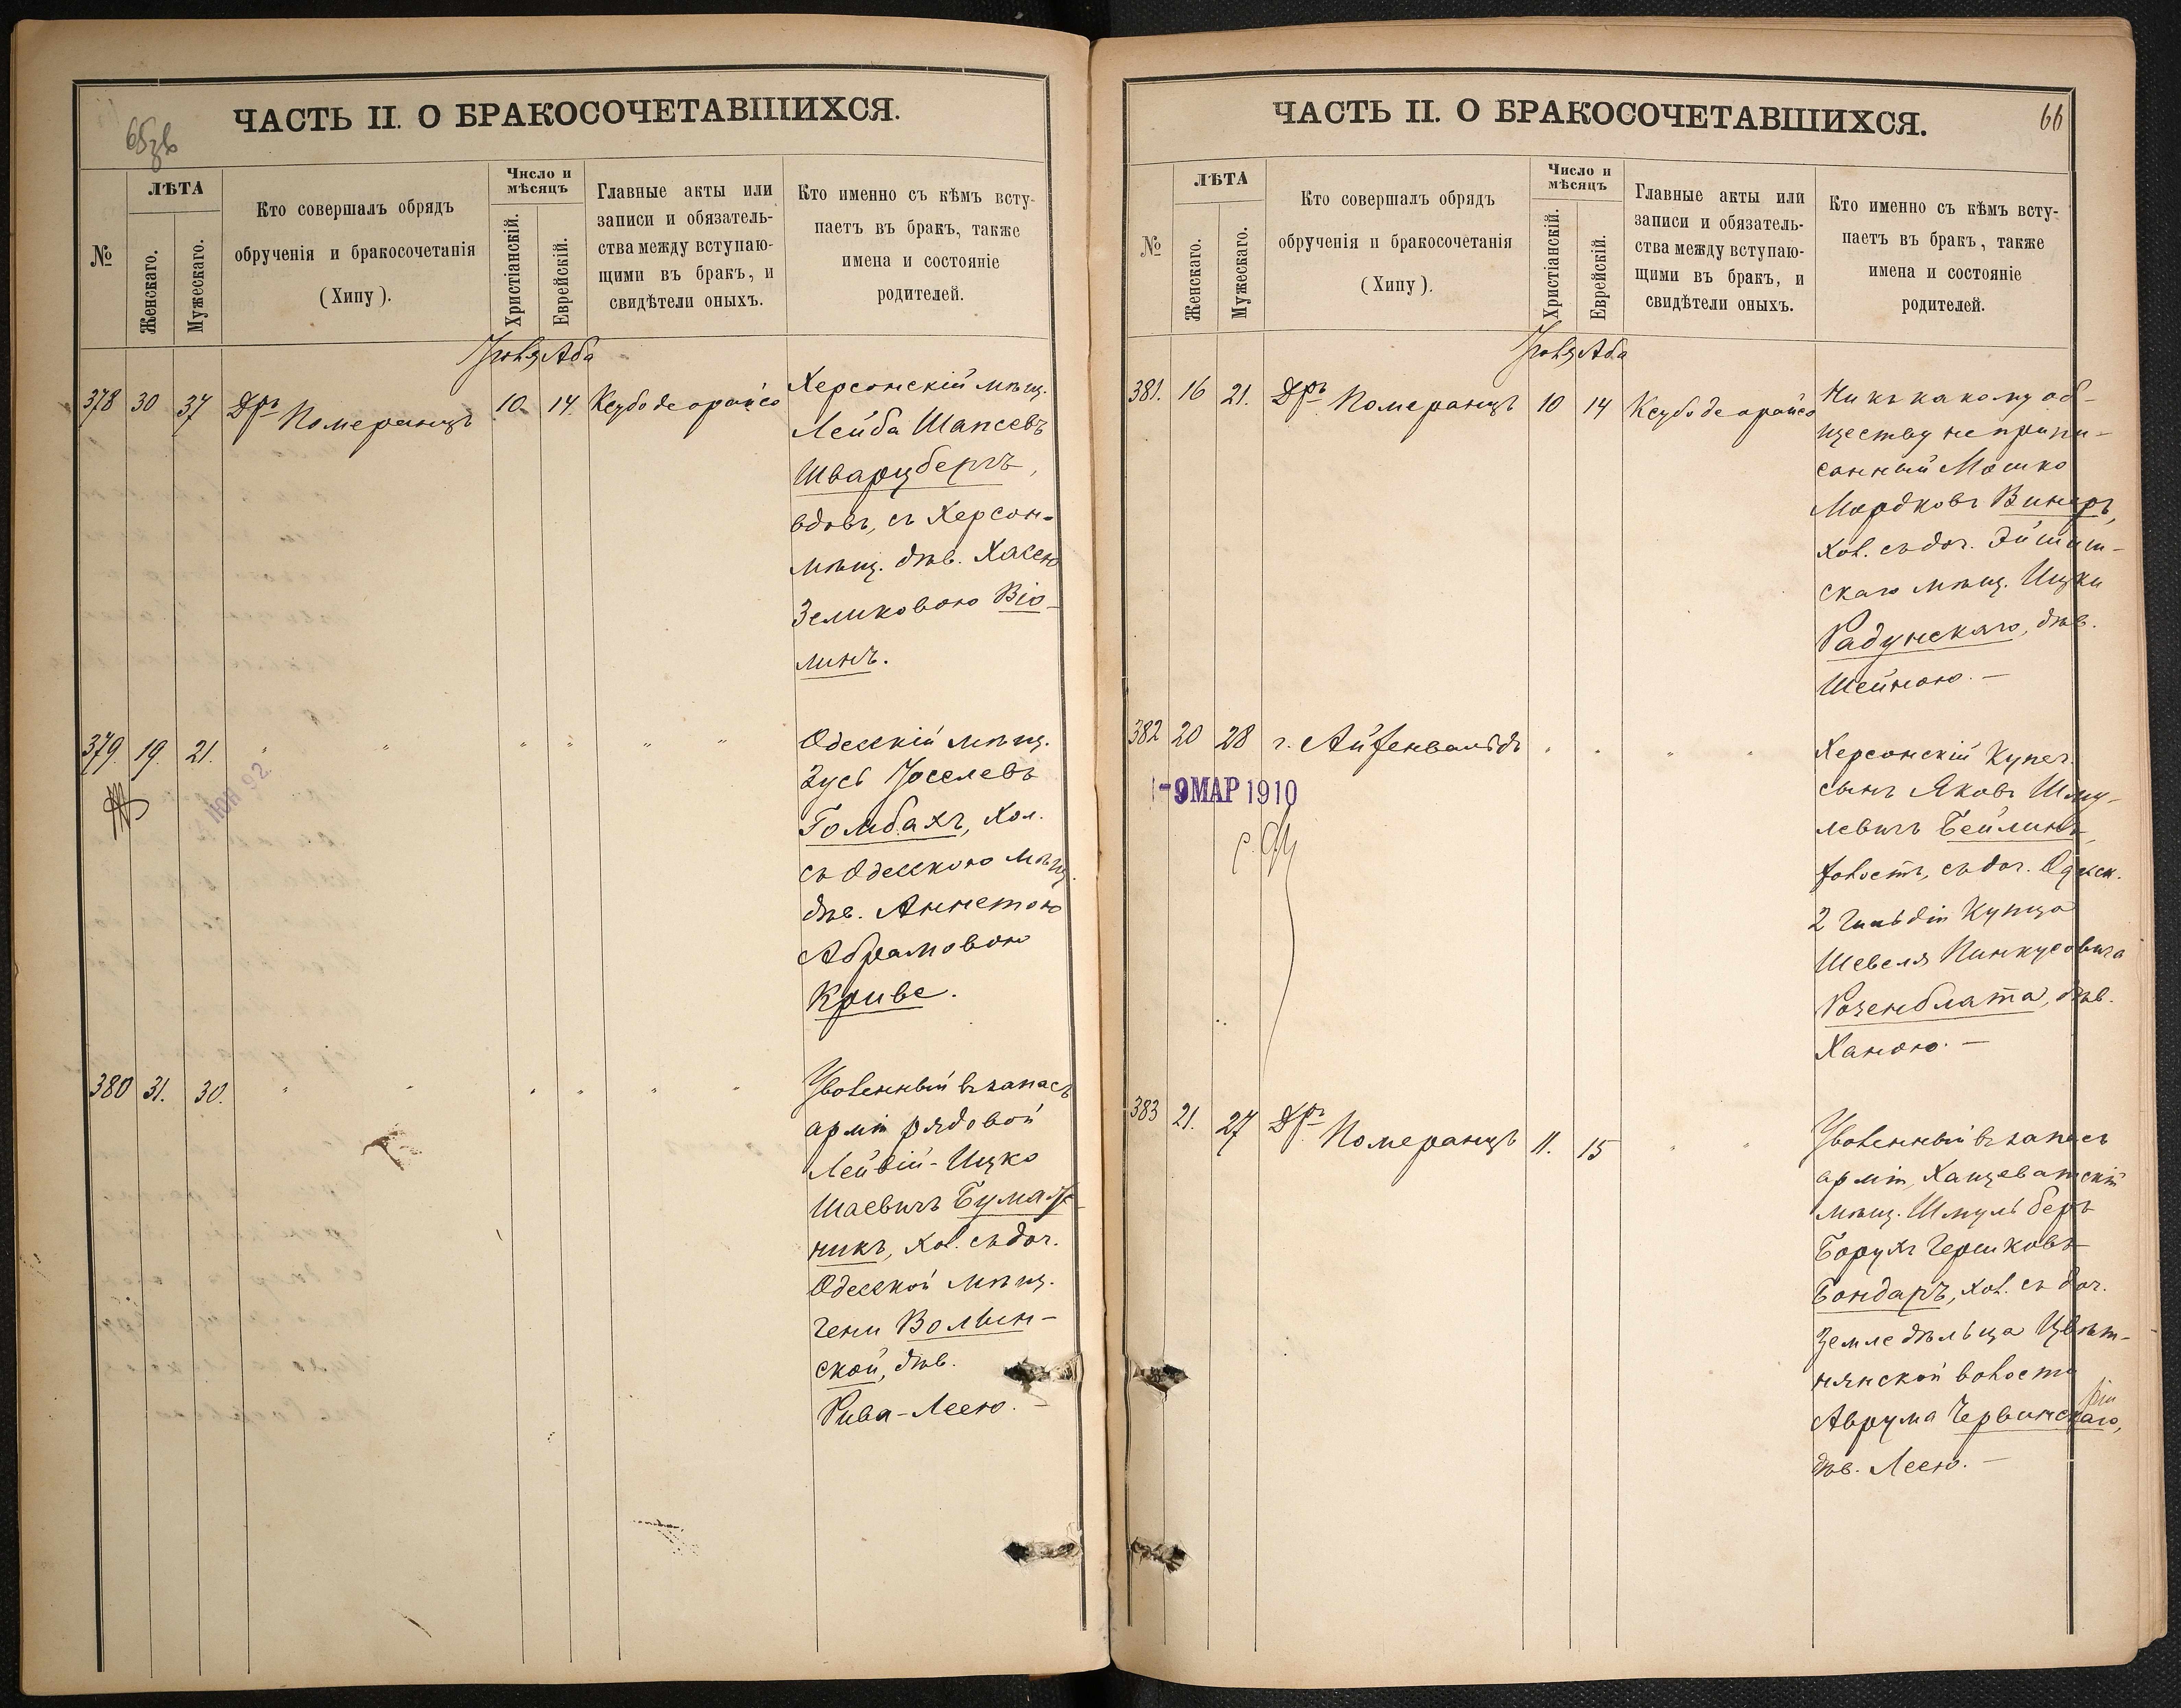 ЧАСТЬ II. О БРАКОСОЧЕТАВШИХСЯ.
№
ЛѢТА
Женскаго.
Мужескаго.
Кто совершалъ обрядъ
обрученія и бракосочетанія
(Хипу).
Число и
мѣсяцъ
Христіанскій.
Еврейскій.
Главные акты или
записи и обязатель-
ства между вступаю-
щими въ бракъ, и
свидѣтели оныхъ.
Кто именно съ кѣмъ всту-
паетъ въ бракъ, также
имена и состояніе
родителей.
Іюля Аба
378 30 37 Дръ Померанцъ 10. 14.
Херсонскій мѣщ.
Лейба Шапсевъ
Шварцбергъ,
вдовъ, съ Херсон-
мѣщ. дѣв. Хасею
Зеликовою Віо-
линъ.
379. 19. 21. " " " " " "
2 ІЮН 92
Одесскій мѣщ.
Зусь Іоселевъ
Гомбахъ, хол.
съ Одесскою мѣщ.
дѣв. Аннетою
Абрамовою
Криве.
380 31. 30. " " " " " "
Уволенный въ запасъ
арміи рядовой
Лейвій-Ицко
Шаевичъ Бумаж-
никъ, хол. съ доч.
Одесской мѣщ.
Гени Волын-
ской, дѣв.
Рива-Леею. —
ЧАСТЬ II. О БРАКОСОЧЕТАВШИХСЯ.
66
№
ЛѢТА
Женскаго.
Мужескаго.
Кто совершалъ обрядъ
обрученія и бракосочетанія
(Хипу).
Число и
мѣсяцъ
Христіанскій.
Еврейскій.
Главные акты или
записи и обязатель-
ства между вступаю-
щими въ бракъ, и
свидѣтели оныхъ.
Кто именно съ кѣмъ всту-
паетъ въ бракъ, также
имена и состояніе
родителей.
Іюля Аба
381. 16 21. Дръ Померанцъ 10 14
Ни къ какому об-
ществу не припи-
санный Мошко
Мордковъ Винеръ,
хол. съ доч. Эйшиш-
скаго мѣщ. Ицки
Радунскаго, дѣв.
Шейною. —
382 20 28 г. Айзенвальдъ " " " "
-9 МАР 1910
Херсонскій купеч.
сынъ Яковъ Шму-
левичъ Бейлинъ,
холостъ, съ доч. Одесск.
2 гильдіи купца
Шевеля Пинкусовича
Розенблата, дѣв.
Ханою. —
383 21. 27 Дръ Померанцъ 11. 15 " "
Уволенный въ запасъ
арміи, Хащеватскій
мѣщ. Шмуль Беръ
Борухъ Гершковъ
Бондарь, хол. съ доч.
Земледѣльца Цвѣт-
нянской волости
Аврума Червинскаго,
дѣв. Леею. —